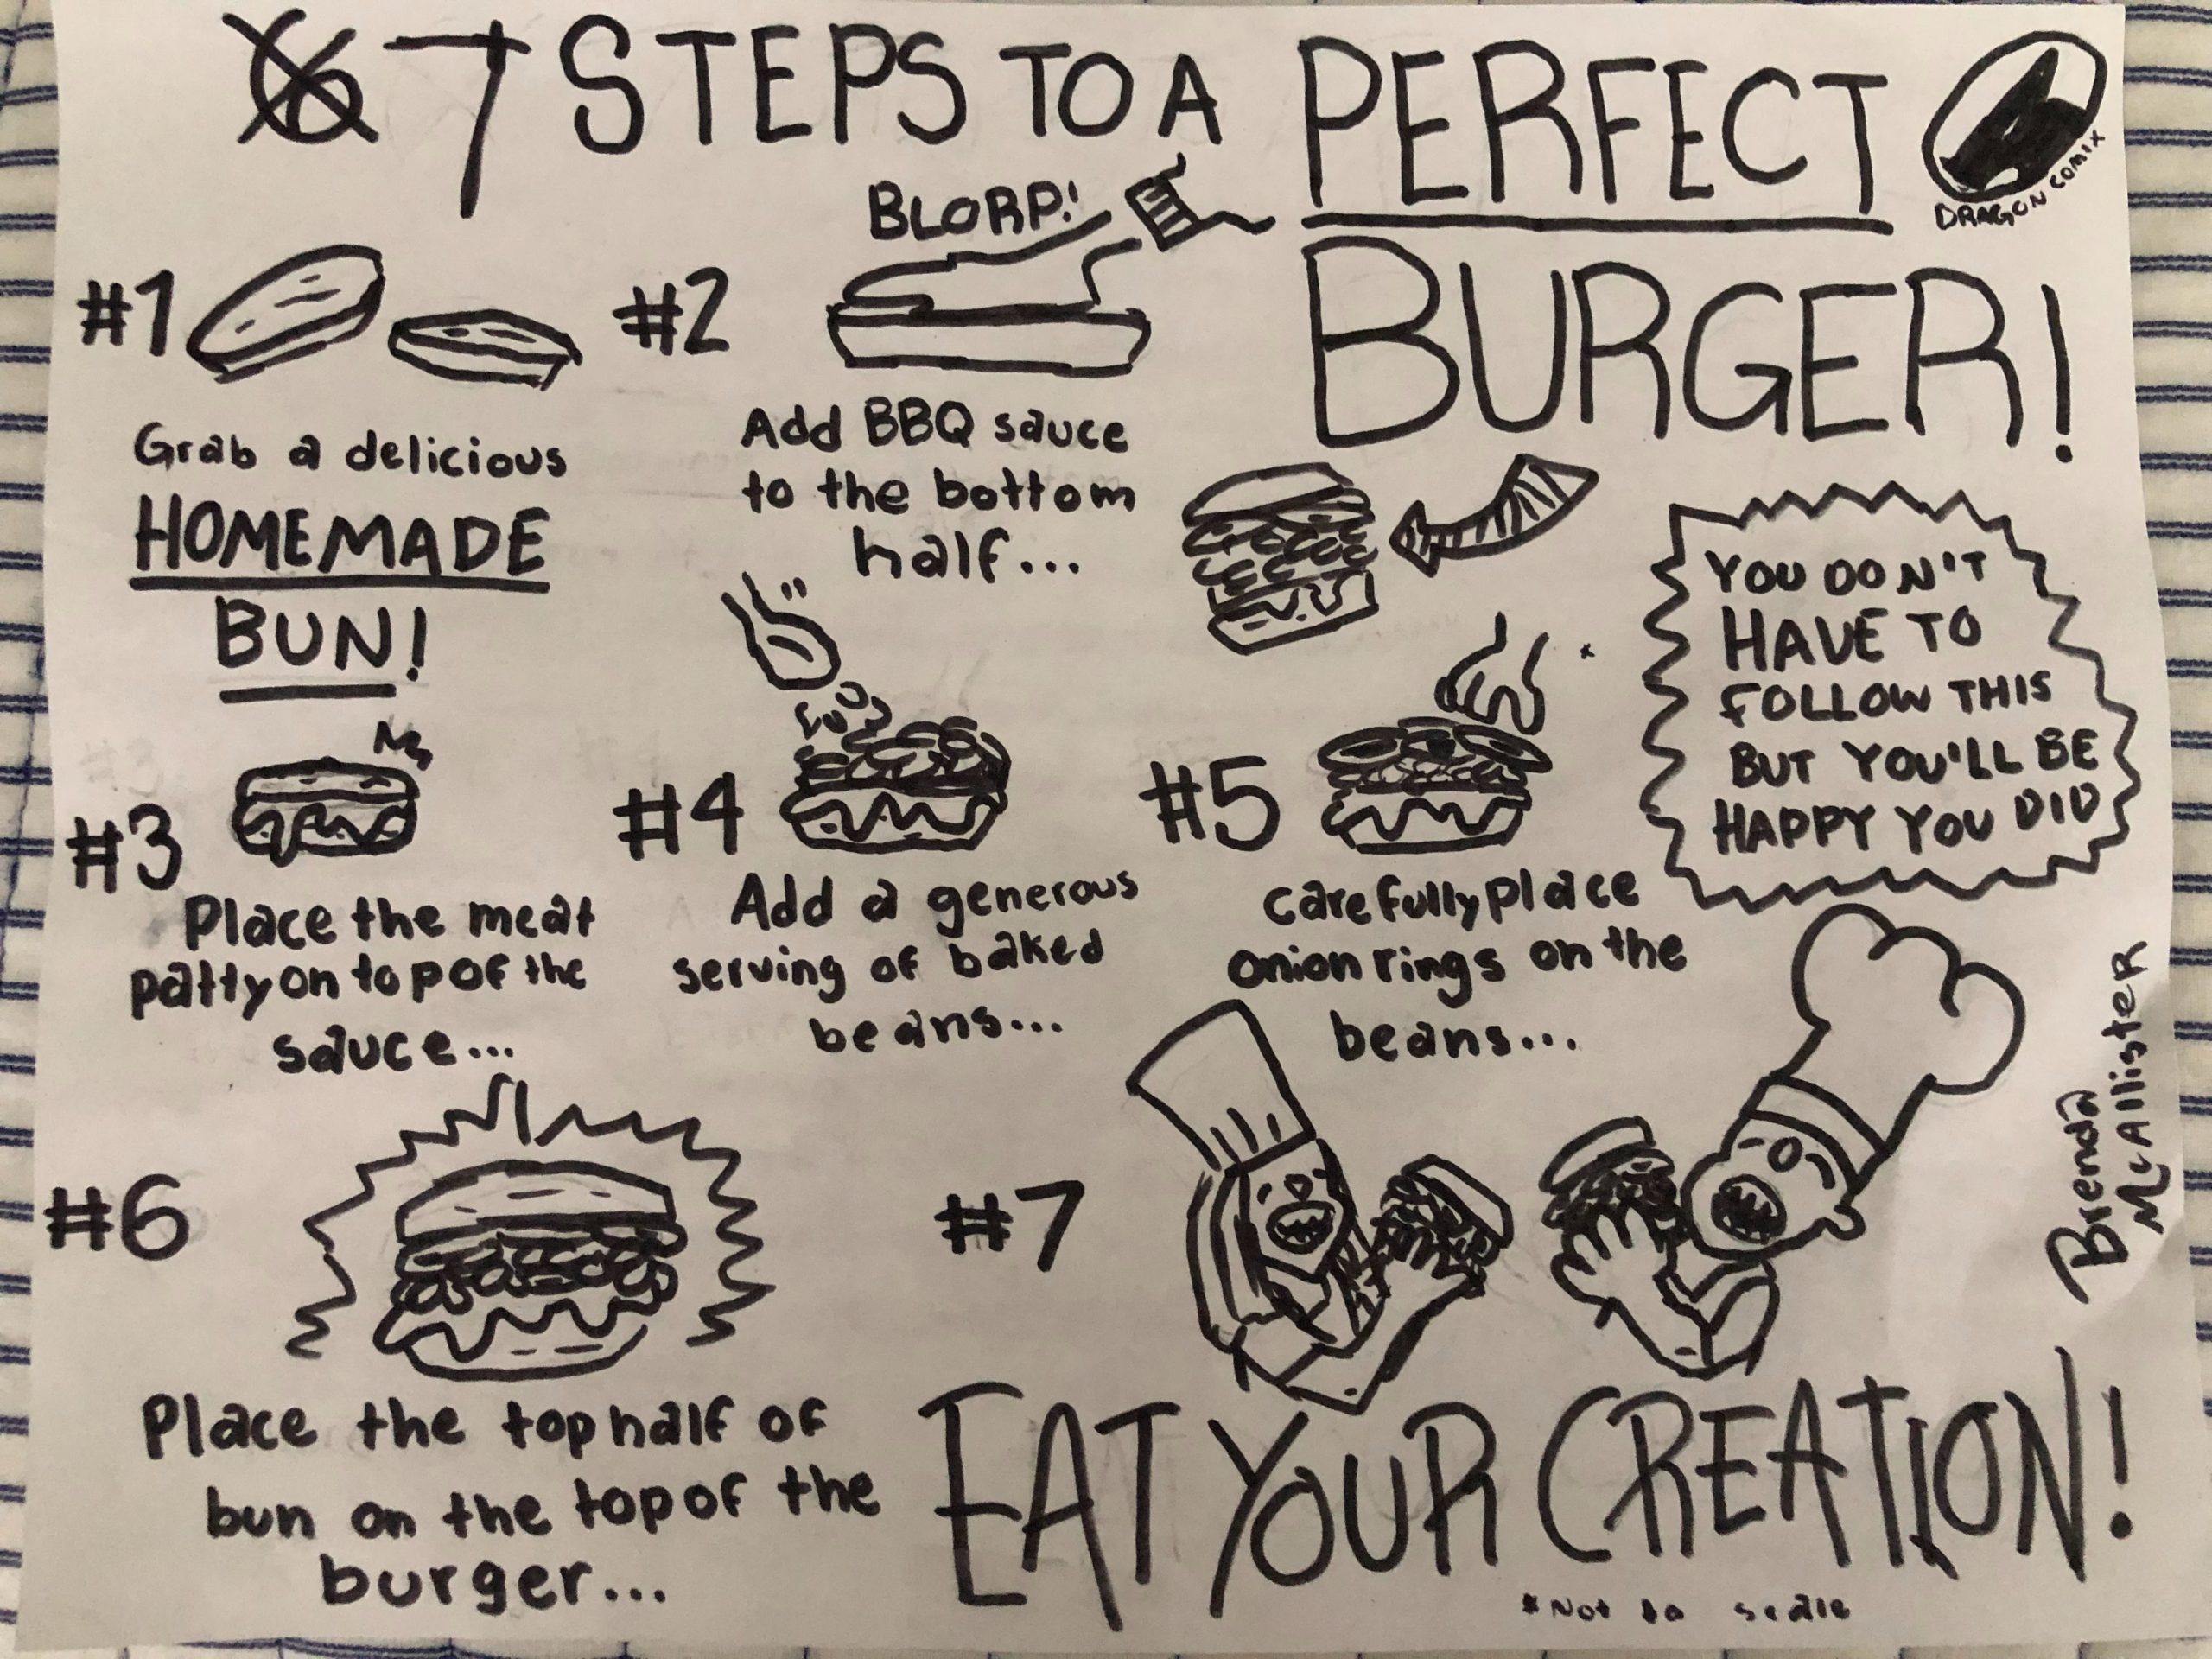 6 7 STEPS TO A PERFECT
BURGER!
DRAGON COMIX
#1
Grab a delicious
HOMEMADE
BUN!
#2
BLORP!
Add BBQ sauce
to the bottom
half...
YOU DON'T
HAVE TO
FOLLOW THIS
BUT YOU'LL BE
HAPPY YOU DID
#3
Place the meat
patty on top of the
sauce...
#4
Add a generous
serving of baked
beans...
#5
Carefully place
onion rings on the
beans...
#6
Place the top half of
bun on the top of the
burger...
#7
EAT YOUR CREATION!
*Not to scale
Brenda
McAllister